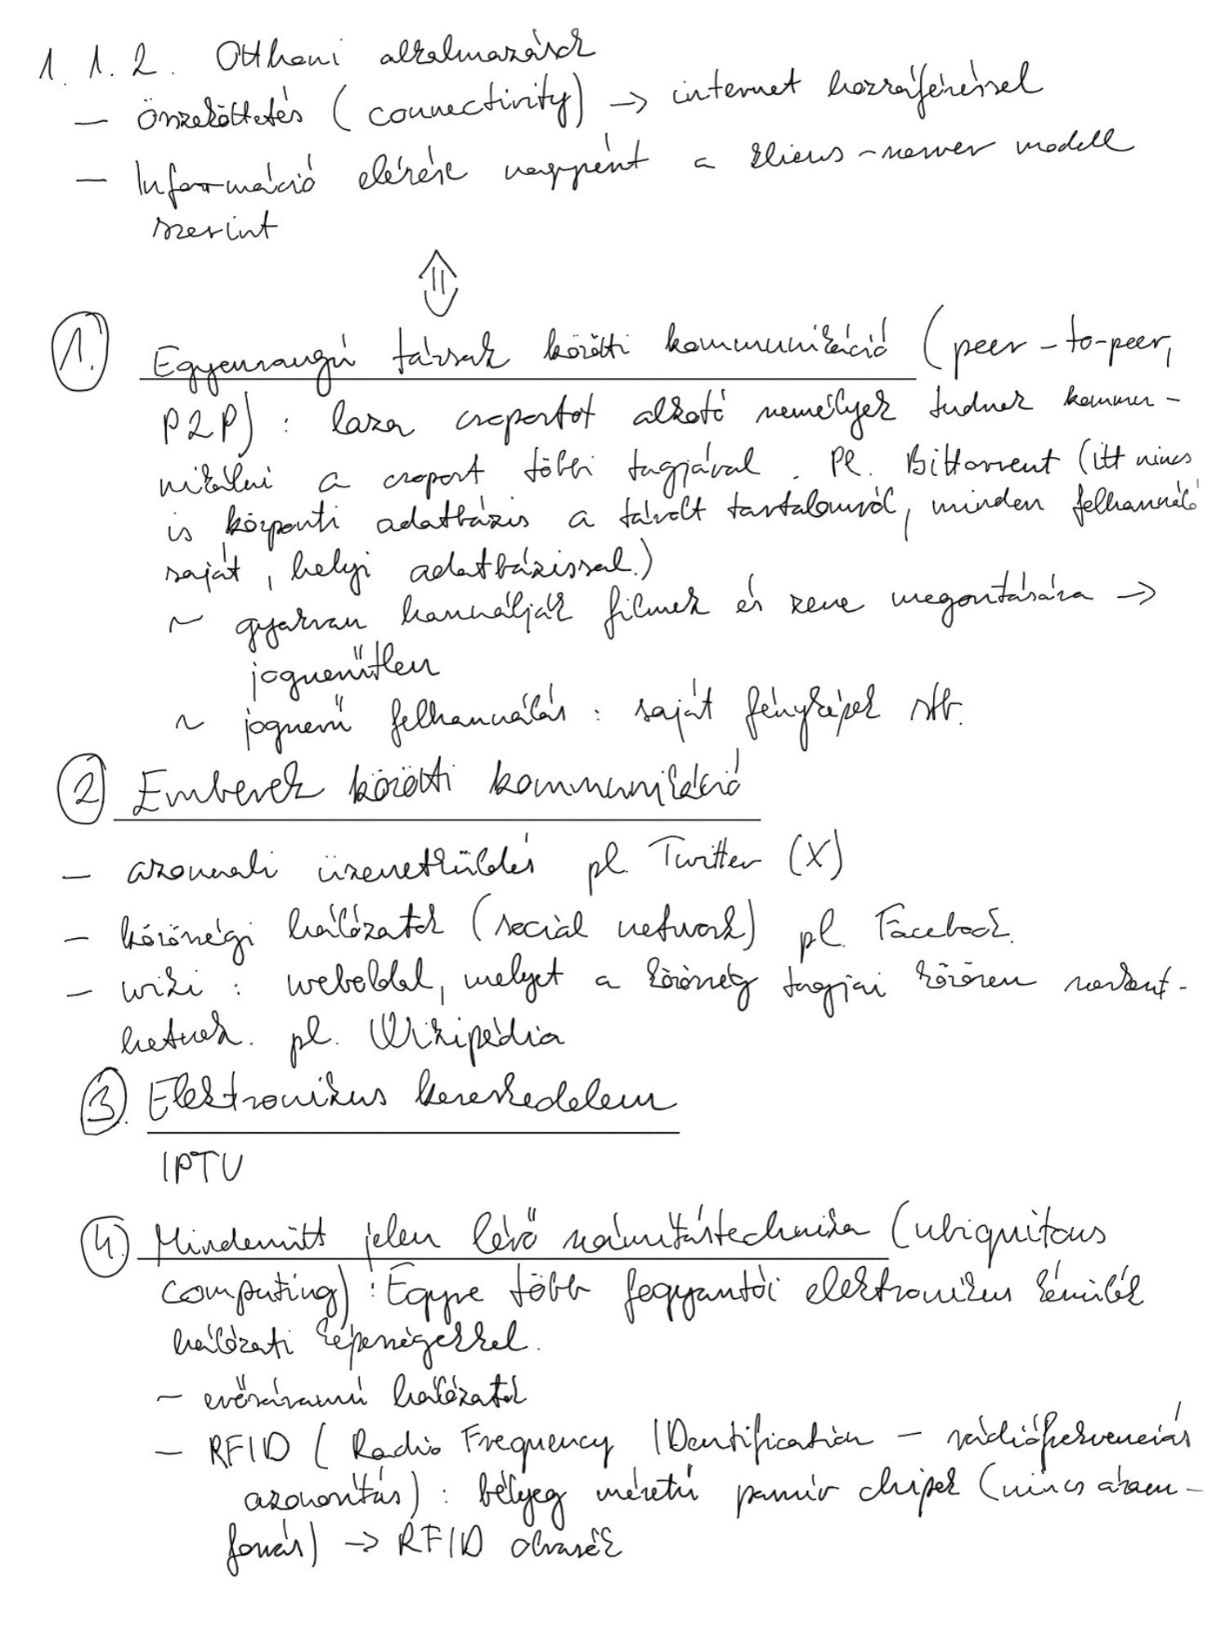 1.1.2. Otthoni alkalmazások
– Összeköttetés (connectivity) → internet hozzáféréssel
– Információ elérése egyként a kliens-szerver modell
szerint
⇕
1. Egyenrangú társak közötti kommunikáció (peer-to-peer,
P2P) : laza csoportot alkotó személyek tudnak kommu-
nikálni a csoport többi tagjával. Pl. Bittorrent (itt nincs
is központi adatbázis a távolt tartalomról, minden felhasználó
saját, helyi adatbázissal.)
~ gyakran használják filmek és zene megosztására →
jogszerűtlen
~ jogszerű felhasználás : saját fényképek stb.
2 Emberek közötti kommunikáció
– azonnali üzenetküldés pl. Twitter (X)
– közösségi hálózatok (social network) pl. Facebook.
– wiki : weboldal, melyet a közösség tagjai közösen szerkeszt-
hetnek. pl. Wikipédia
3. Elektronikus kereskedelem
IPTV
4. Mindenütt jelen lévő számítástechnika (ubiquitous
computing) : Egyre több fogyasztói elektronikus készülék
hálózati képességekkel.
– erősáramú hálózatok
– RFID (Radio Frequency IDentification – rádiófrekvenciás
azonosítás) : bélyeg méretű passzív chipek (nincs áram-
forrás) → RFID olvasók